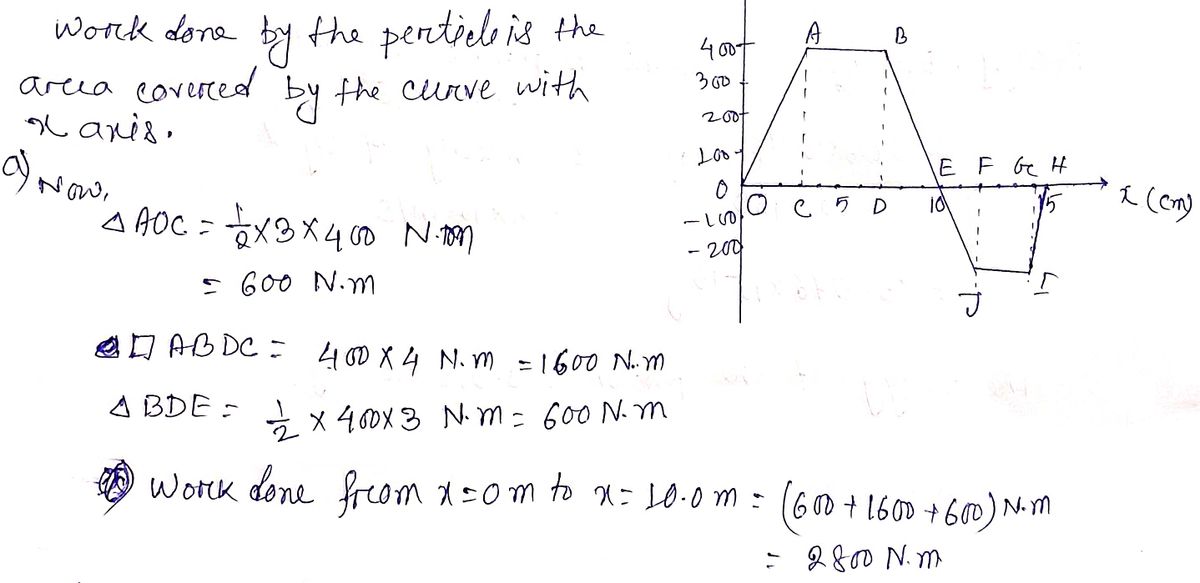 Work done by the perticle is the
area covered by the curve with
x axis.
a) Now,
△ AOC = 1/2 × 3 × 400 N.m
= 600 N.m
□ ABDC = 400 × 4 N.m = 1600 N.m
△ BDE = 1/2 × 400 × 3 N.m = 600 N.m
Work done from x = 0 m to x = 10.0 m = (600 + 1600 + 600) N.m
= 2800 N.m
A B
400
300
200
100
0
-100
-200
E F G H
O C 5 D 10 15 x (cm)
J I